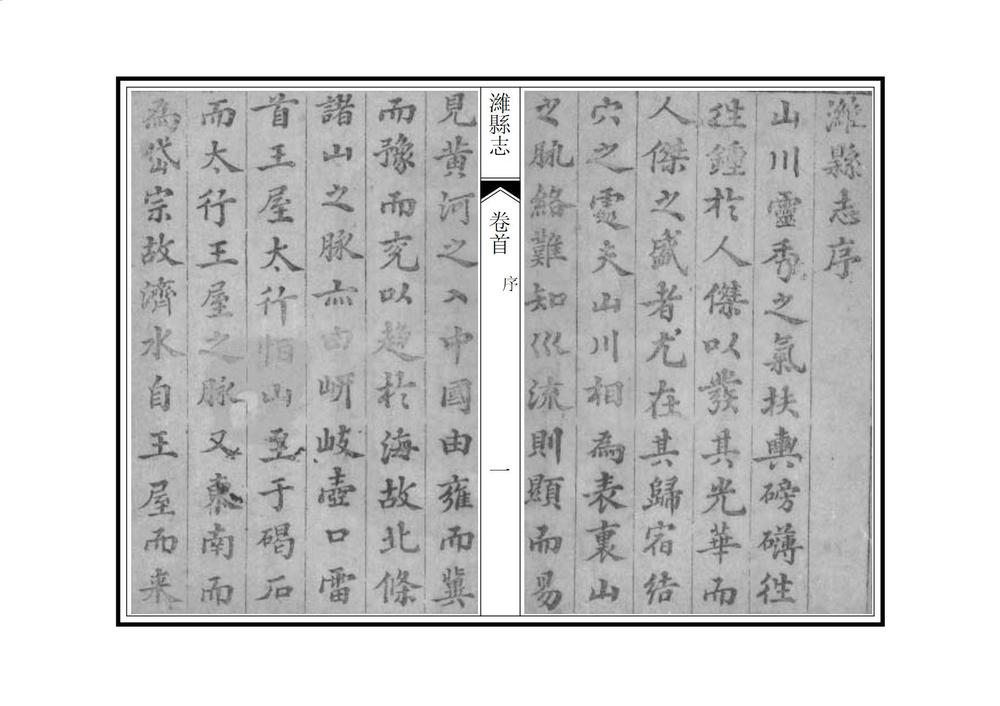 濰縣志序
山川靈秀之氣扶輿磅礴徃
徃鍾於人傑以發其光華而
人傑之盛者尤在其歸宿結
穴之處夫山川相為表裏山
之脈絡難知巛流則顯而易
濰縣志
卷首
序
一
見黄河之入中國由雍而冀
而豫而兖以趋於海故北條
諸山之脉亦由岍岐壺口雷
首王屋太行恒山至于碣石
而太行王屋之脉又東南而
為岱宗故濟水自王屋而来